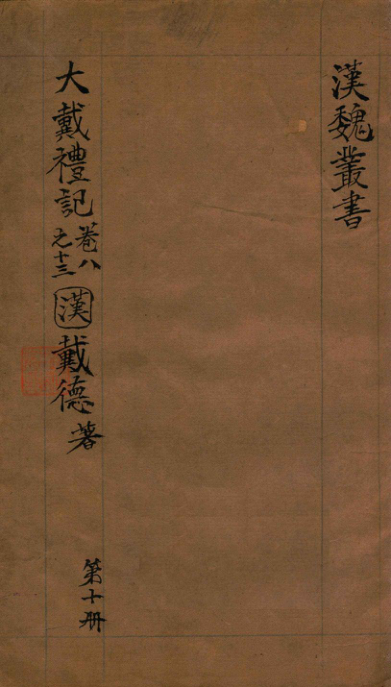 漢魏叢書
大戴禮記卷八之十三漢戴德著
第十册